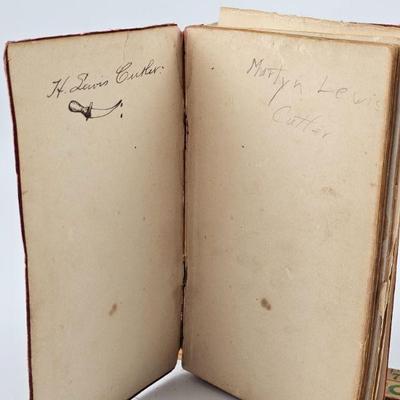 H. Lewis Cutler.
Martyn Lewis
Cutler